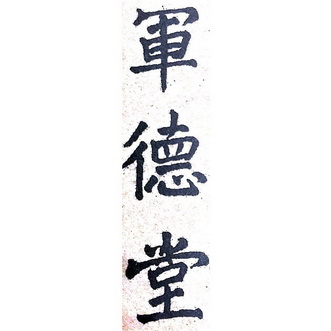 軍德堂